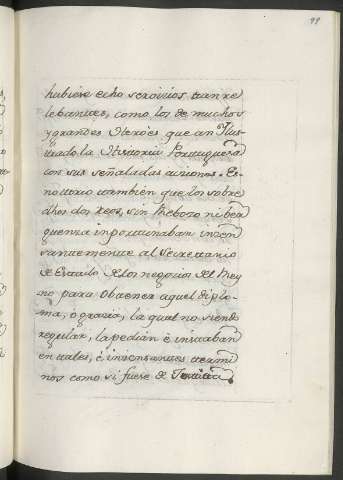 99
hubiese echo servicios tan re
lebantes, como los de muchos
y grandes Heroes que an Ilus
trado la Historia Portuguesa
con sus señaladas acciones. Es
notorio tambien que los sobre
dhos dos Reos, sin Rebozo ni ber
guenza inportunaban incen
santemente al Secrettario
de Estado de los negocios del Rey
no para obtener aquel diplo
ma, o gracia, la qual no siendo
regular, la pedian è instaban
en tales, è insensantes termi
nos como si fuese de Justicia.